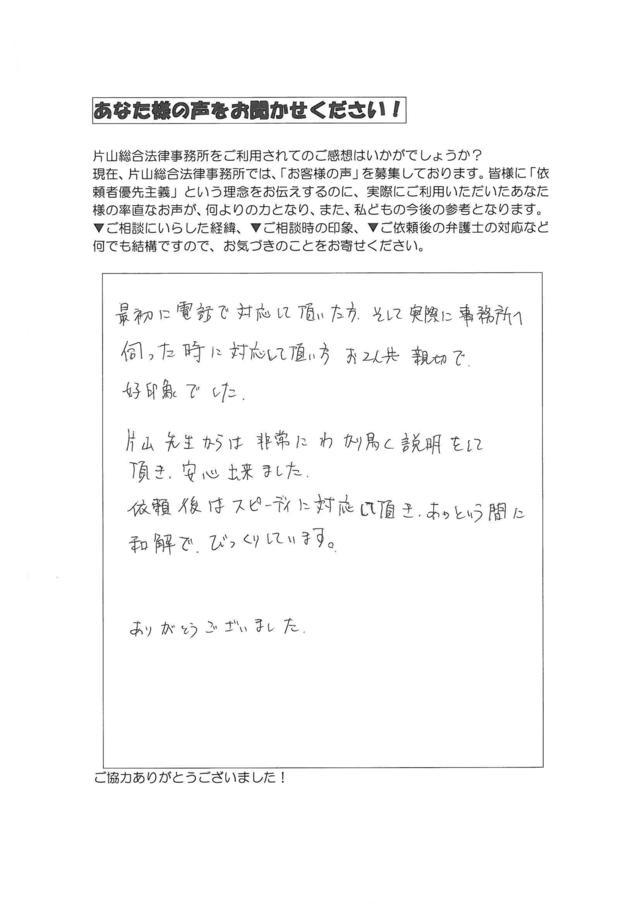 あなた様の声をお聞かせください！
片山総合法律事務所をご利用されてのご感想はいかがでしょうか？
現在、片山総合法律事務所では、「お客様の声」を募集しております。皆様に「依
頼者優先主義」という理念をお伝えするのに、実際にご利用いただいたあなた
様の率直なお声が、何よりの力となり、また、私どもの今後の参考となります。
▼ご相談にいらした経緯、▼ご相談時の印象、▼ご依頼後の弁護士の対応など
何でも結構ですので、お気づきのことをお寄せください。
最初に電話で対応して頂いた方、そして実際に事務所へ
伺った時に対応して頂い方 お2人共 親切で、
好印象でした。
片山先生からは 非常に わかり易く説明をして
頂き、安心出来ました。
依頼後はスピーディに対応して頂き、あっという間に
和解で、びっくりしています。
ありがとうございました。
ご協力ありがとうございました！